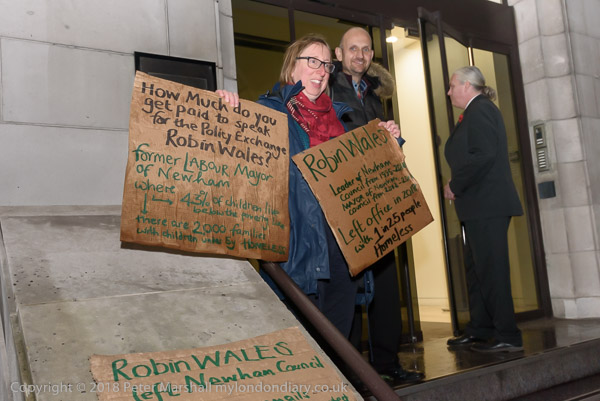 How Much do you
get paid to speak
for the Policy Exchange
Robin Wales?
former LABOUR Mayor
of Newham
where
45% of children live
below the poverty line
there are 2,000 families
with children under 5 Homeless
Robin Wales
Leader of Newham
Council from 1995-
Mayor of Newham
Council from 2002-
Left office in 2018
with 1 in 25 people
Homeless
Robin WALES
left Newham Council
Copyright © 2018 Peter Marshall mylondondiary.co.uk